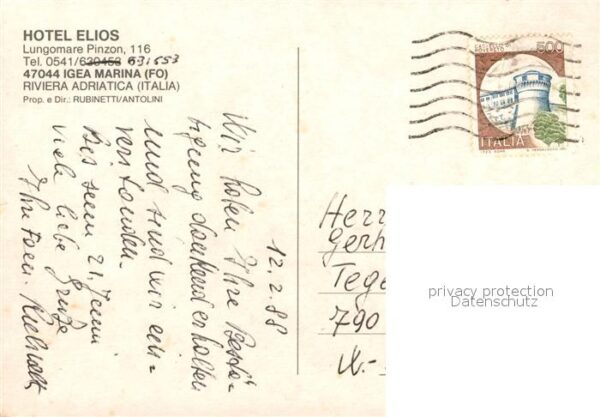 HOTEL ELIOS
Lungomare Pinzon, 116
Tel. 0541/630453 631553
47044 IGEA MARINA (FO)
RIVIERA ADRIATICA (ITALIA)
Prop. e Dir.: RUBINETTI/ANTOLINI
12.2.88
Wir haben Ihre Bestä-
tigung dankend erhalten
und sind mir ein-
verstanden.
Bis zum 21. Juni
viele liebe Grüße
Ihre Fam.
500
ITALIA
Herr
Gerh
Tege
790
W.-
privacy protection
Datenschutz